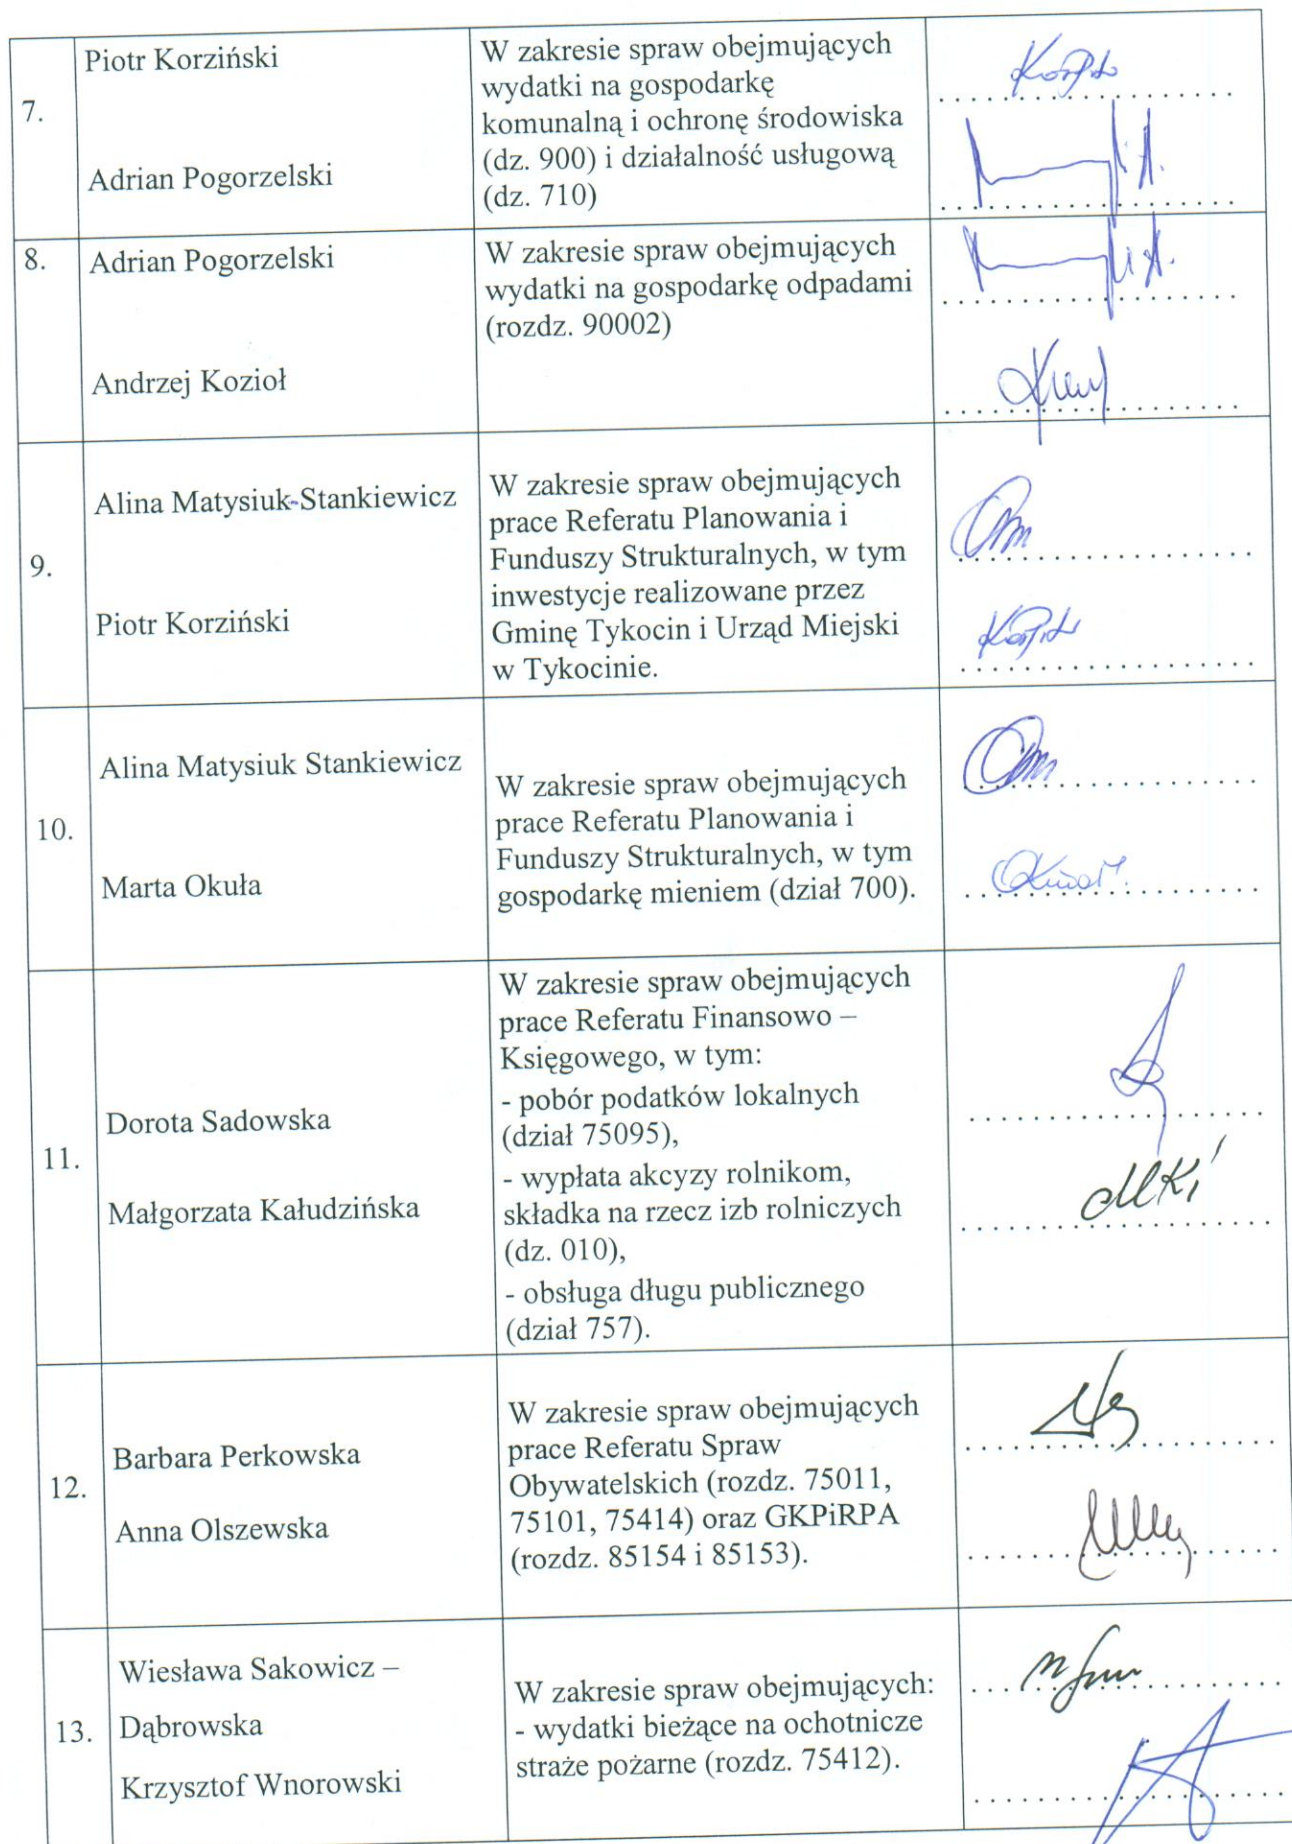 7.
Piotr Korziński
Adrian Pogorzelski
W zakresie spraw obejmujących
wydatki na gospodarkę
komunalną i ochronę środowiska
(dz. 900) i działalność usługową
(dz. 710)
8.
Adrian Pogorzelski
Andrzej Kozioł
W zakresie spraw obejmujących
wydatki na gospodarkę odpadami
(rozdz. 90002)
9.
Alina Matysiuk-Stankiewicz
Piotr Korziński
W zakresie spraw obejmujących
prace Referatu Planowania i
Funduszy Strukturalnych, w tym
inwestycje realizowane przez
Gminę Tykocin i Urząd Miejski
w Tykocinie.
10.
Alina Matysiuk Stankiewicz
Marta Okuła
W zakresie spraw obejmujących
prace Referatu Planowania i
Funduszy Strukturalnych, w tym
gospodarkę mieniem (dział 700).
11.
Dorota Sadowska
Małgorzata Kałudzińska
W zakresie spraw obejmujących
prace Referatu Finansowo –
Księgowego, w tym:
- pobór podatków lokalnych
(dział 75095),
- wypłata akcyzy rolnikom,
składka na rzecz izb rolniczych
(dz. 010),
- obsługa długu publicznego
(dział 757).
12.
Barbara Perkowska
Anna Olszewska
W zakresie spraw obejmujących
prace Referatu Spraw
Obywatelskich (rozdz. 75011,
75101, 75414) oraz GKPiRPA
(rozdz. 85154 i 85153).
13.
Wiesława Sakowicz –
Dąbrowska
Krzysztof Wnorowski
W zakresie spraw obejmujących:
- wydatki bieżące na ochotnicze
straże pożarne (rozdz. 75412).